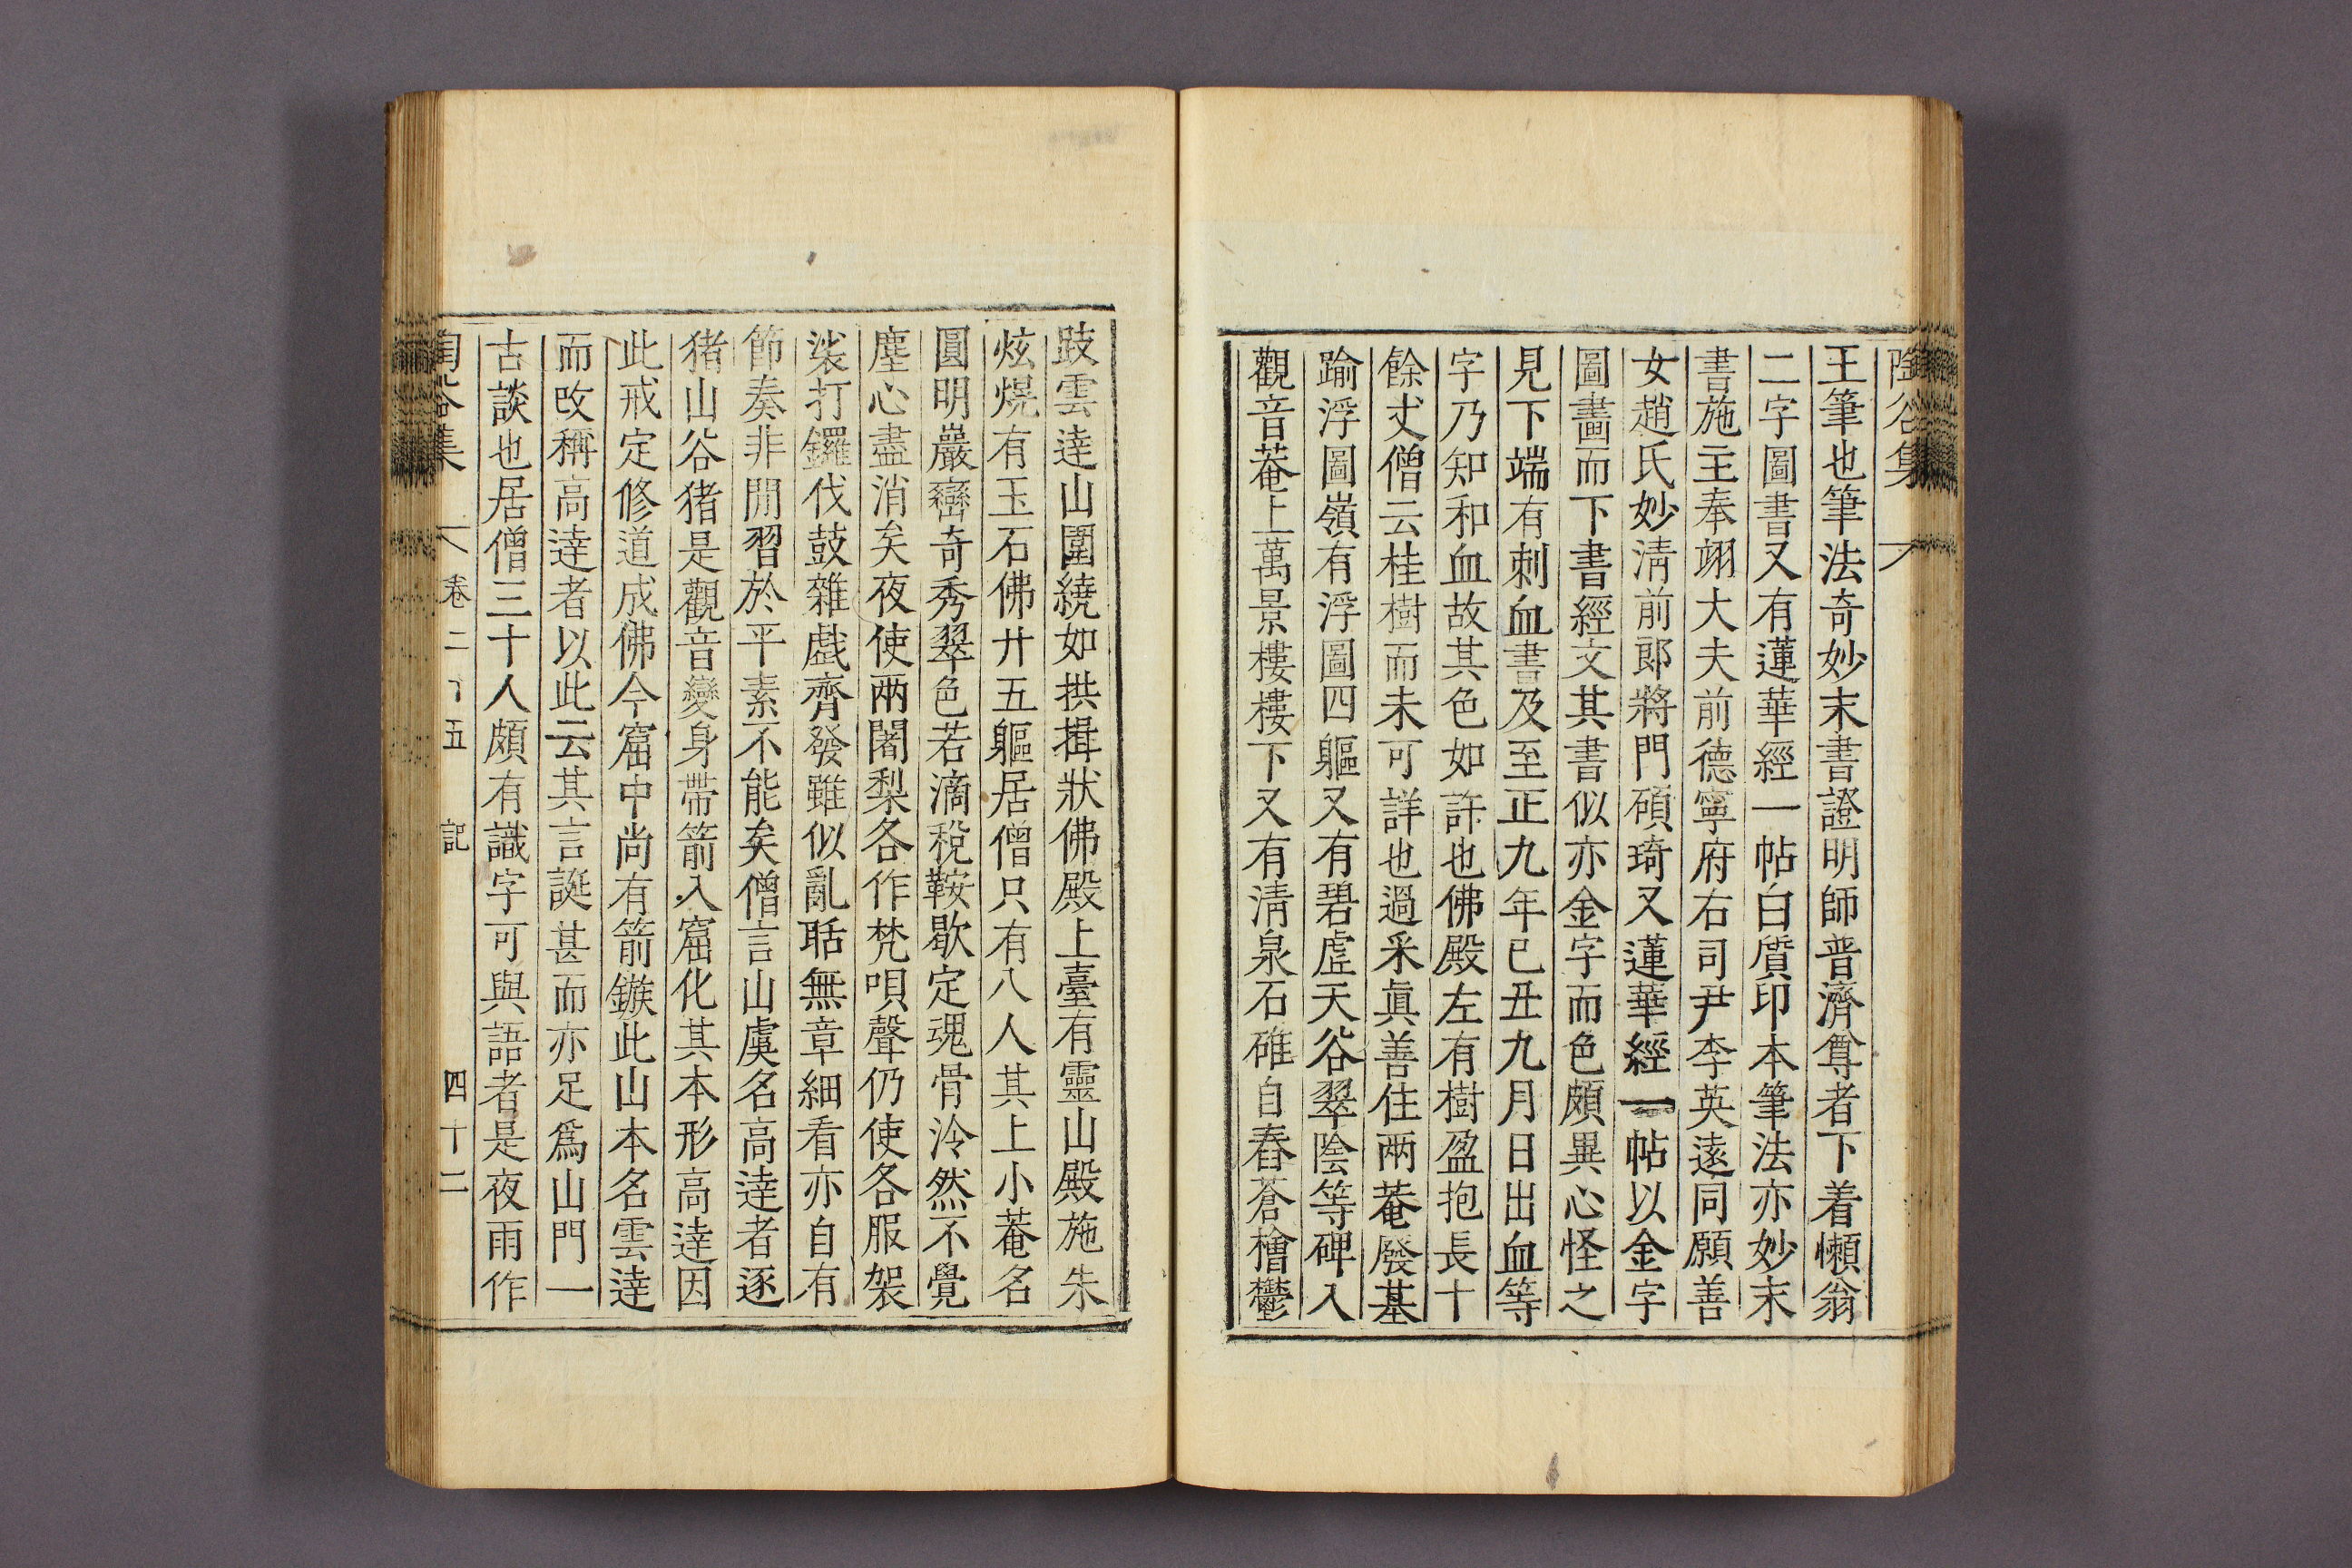 陶谷集
王筆也筆法奇妙末書證明師普濟尊者下着懶翁
二字圖書又有蓮華經一帖白質印本筆法亦妙末
書施主奉翊大夫前德寧府右司尹李英遠同願善
女趙氏妙淸前郞將門碩琦又蓮華經一帖以金字
圖畵而下書經文其書似亦金字而色頗異心怪之
見下端有刺血書及至正九年已丑九月日出血等
字乃知和血故其色如許也佛殿左有樹盈抱長十
餘丈僧云桂樹而未可詳也過釆眞善住兩菴廢基
踰浮圖嶺有浮圖四軀又有碧虗天谷翠陰等碑入
觀音菴上萬景樓樓下又有淸泉石碓自舂蒼檜鬱
跂雲達山圍繞如拱揖狀佛殿上臺有靈山殿施朱
炫熀有玉石佛廿五軀居僧只有八人其上小菴名
圓明巖巒奇秀翠色若滴稅鞍歇定魂骨泠然不覺
塵心盡消矣夜使兩闍梨各作梵唄聲仍使各服袈
裟打鑼伐鼓雜戱齊發雖似亂聒無章細看亦自有
節奏非閒習於平素不能矣僧言山虞名高達者逐
猪山谷猪是觀音變身帶箭入窟化其本形高達因
此戒定修道成佛今窟中尚有箭鏃此山本名雲達
而改稱高達者以此云其言誕甚而亦足爲山門一
古談也居僧三十人頗有識字可與語者是夜雨作
陶谷集 卷二十五 記 四十二